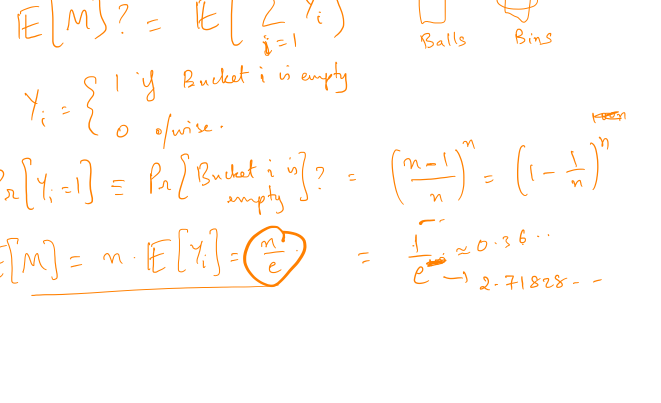 E[M]? = E[ Σ_{i=1} Y_i ]
Balls Bins
Y_i = { 1 if Bucket i is empty
0 o/wise.
Pr[Y_i=1] ≡ Pr[Bucket i is empty]? = ((n-1)/n)^n = (1 - 1/n)^n
E[M] = n · E[Y_i] = n/e = 1/e ≈ 0.36..
→ 2.71828 - -